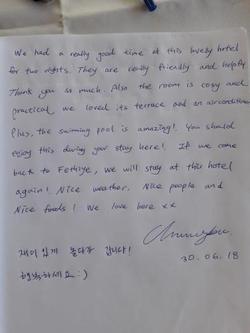 We had a really good time at this lovely hotel
for two nights. They are really friendly and helpful
Thank you so much. Also the room is cosy and
practical. we loved its terrace and an airconditioner
Plus, the swimming pool is amazing! You should
enjoy this during your stay here! If we come
back to Fethiye, we will stay at this hotel
again! Nice weather, Nice people and
Nice foods! We love here xx
재미있게 놀다가 갑니다!
30.06.18
행복하세요 :)